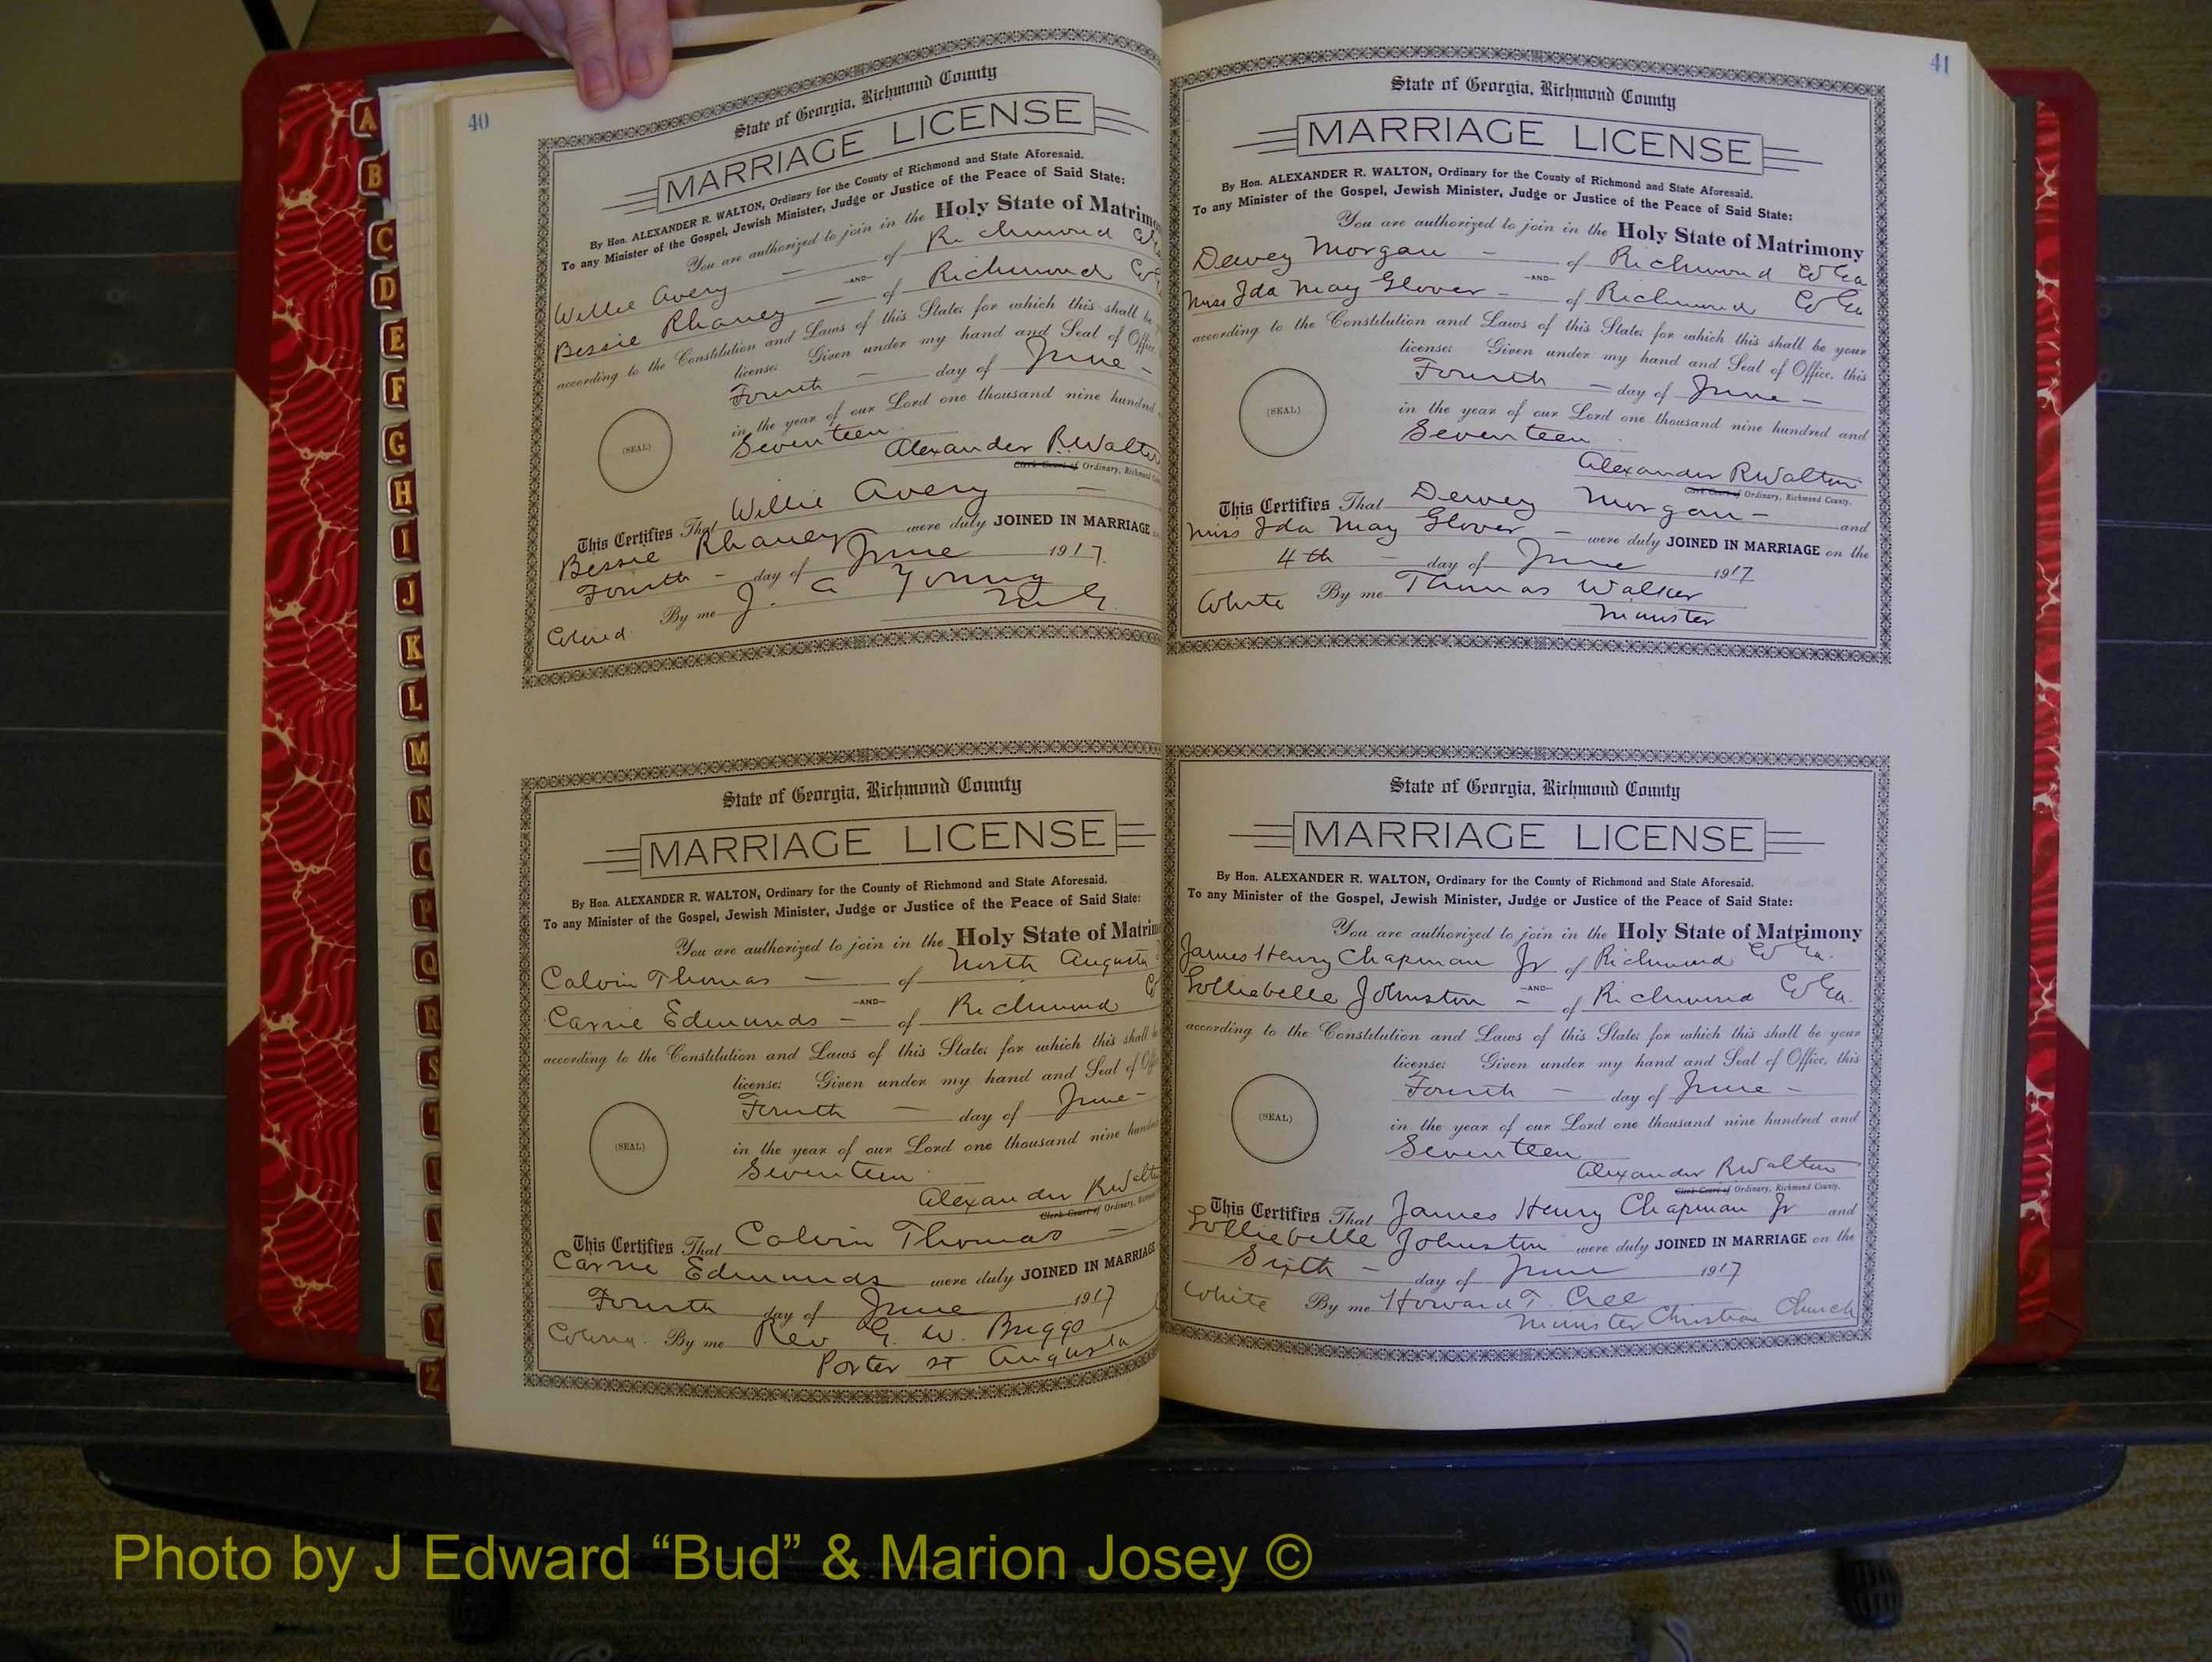 40
State of Georgia, Richmond County
MARRIAGE LICENSE
By Hon. ALEXANDER R. WALTON, Ordinary for the County of Richmond and State Aforesaid.
To any Minister of the Gospel, Jewish Minister, Judge or Justice of the Peace of Said State:
You are authorized to join in the Holy State of Matrimo
Willie Avery — of Richmond
—AND—
Bessie Rhaney — of Richmond Co
according to the Constitution and Laws of this State; for which this shall be
license: Given under my hand and Seal of Office,
Fourth — day of June —
(SEAL)
in the year of our Lord one thousand nine hundred
Seventeen
Alexander R. Walton
Clerk Court of Ordinary, Richmond
This Certifies That Willie Avery —
Bessie Rhaney were duly JOINED IN MARRIAGE
Fourth — day of June 1917.
Colored. By me J. A Young
M. G.
State of Georgia, Richmond County
MARRIAGE LICENSE
By Hon. ALEXANDER R. WALTON, Ordinary for the County of Richmond and State Aforesaid.
To any Minister of the Gospel, Jewish Minister, Judge or Justice of the Peace of Said State:
You are authorized to join in the Holy State of Matrim
Calvin Thomas — of North Augusta
—AND—
Carrie Edmunds — of Richmond
according to the Constitution and Laws of this State; for which this shall be
license: Given under my hand and Seal of Off
Fourth — day of June —
(SEAL)
in the year of our Lord one thousand nine hundre
Seventeen
Alexander R Walto
Clerk Court of Ordinary,
This Certifies That Calvin Thomas —
Carrie Edmunds were duly JOINED IN MARRIAGE
Fourth day of June 1917
Colored. By me Rev G. W. Briggs
Porter st Augusta
41
State of Georgia, Richmond County
MARRIAGE LICENSE
By Hon. ALEXANDER R. WALTON, Ordinary for the County of Richmond and State Aforesaid.
To any Minister of the Gospel, Jewish Minister, Judge or Justice of the Peace of Said State:
You are authorized to join in the Holy State of Matrimony
Dewey Morgan — of Richmond Co Ga
—AND—
Miss Ida May Glover — of Richmond Co Ga
according to the Constitution and Laws of this State; for which this shall be your
license: Given under my hand and Seal of Office, this
Fourth — day of June —
(SEAL)
in the year of our Lord one thousand nine hundred and
Seventeen
Alexander R Walton
Clerk Court of Ordinary, Richmond County.
This Certifies That Dewey Morgan — and
Miss Ida May Glover — were duly JOINED IN MARRIAGE on the
4th — day of June 1917
White By me Thomas Walker
Minister
State of Georgia, Richmond County
MARRIAGE LICENSE
By Hon. ALEXANDER R. WALTON, Ordinary for the County of Richmond and State Aforesaid.
To any Minister of the Gospel, Jewish Minister, Judge or Justice of the Peace of Said State:
You are authorized to join in the Holy State of Matrimony
James Henry Chapman Jr of Richmond Co Ga.
—AND—
Lolliebelle Johnston — of Richmond Co Ga.
according to the Constitution and Laws of this State; for which this shall be your
license: Given under my hand and Seal of Office, this
Fourth — day of June —
(SEAL)
in the year of our Lord one thousand nine hundred and
Seventeen
Alexander R Walton
Clerk Court of Ordinary, Richmond County.
This Certifies That James Henry Chapman Jr and
Lolliebelle Johnston were duly JOINED IN MARRIAGE on the
Sixth — day of June 1917
White By me Howard T. Cree
Minister Christian Church
A
B
C
D
E
F
G
H
I
J
K
L
M
N
O
P
Q
R
S
T
U
V
W
Y
Z
Photo by J Edward “Bud” & Marion Josey ©